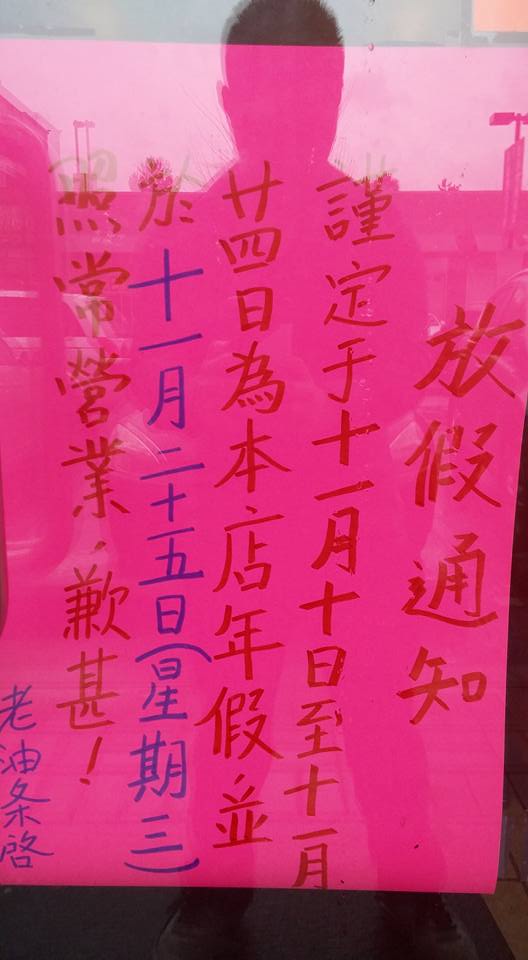 放假通知
謹定于十一月十日至十一月
廿四日為本店年假，並
於十一月二十五日(星期三)
照常營業，歉甚！
老油条啓